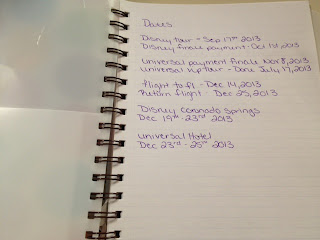 Dates
Disney tour - Sep 17th 2013
Disney finale payment - Oct 1st, 2013
Universal payment finale Nov 8, 2013
Universal vip tour - Done July 17, 2013
flight to fl - Dec 14, 2013
Return flight - Dec 25, 2013
Disney Coronado Springs
Dec 19th - 23rd 2013
Universal Hotel
Dec 23rd - 25th 2013